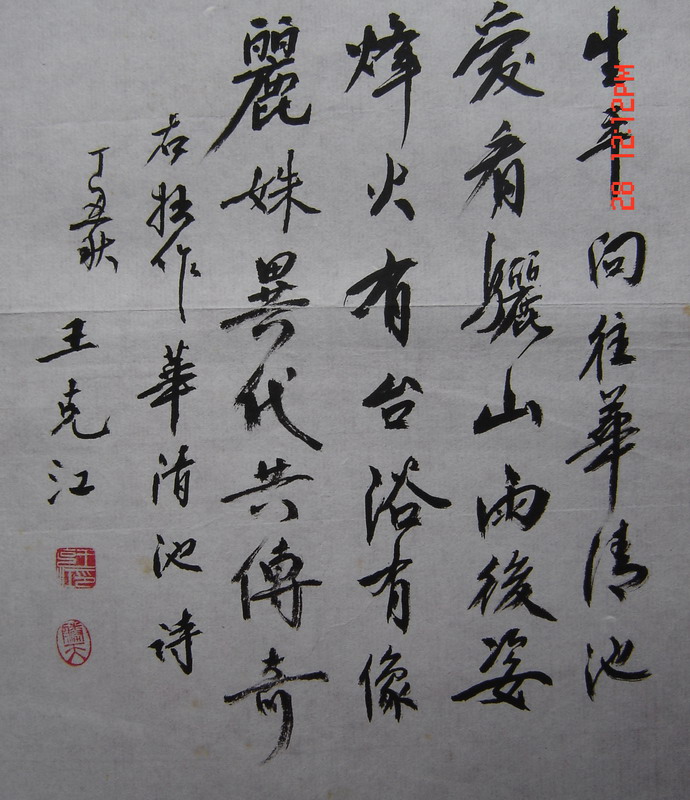 生平向往華清池
愛看驪山雨後姿
烽火有台浴有像
麗姝異代共傳奇
右拙作華清池詩
丁丑秋 王克江
28 12:12PM